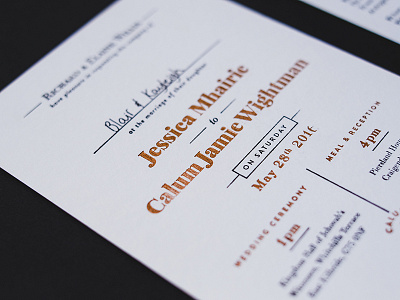 Richard & Elaine
have pleasure in requesting the company of
Blair & Kayleigh
at the marriage of their daughter
Jessica Mhairie
to
Calum Jamie Wightman
ON SATURDAY
May 28th 2016
WEDDING CEREMONY
1pm
Kingdom Hall of Jehovah's
Witnesses, Whitehills Terrace
East Kilbride,
MEAL & RECEPTION
4pm